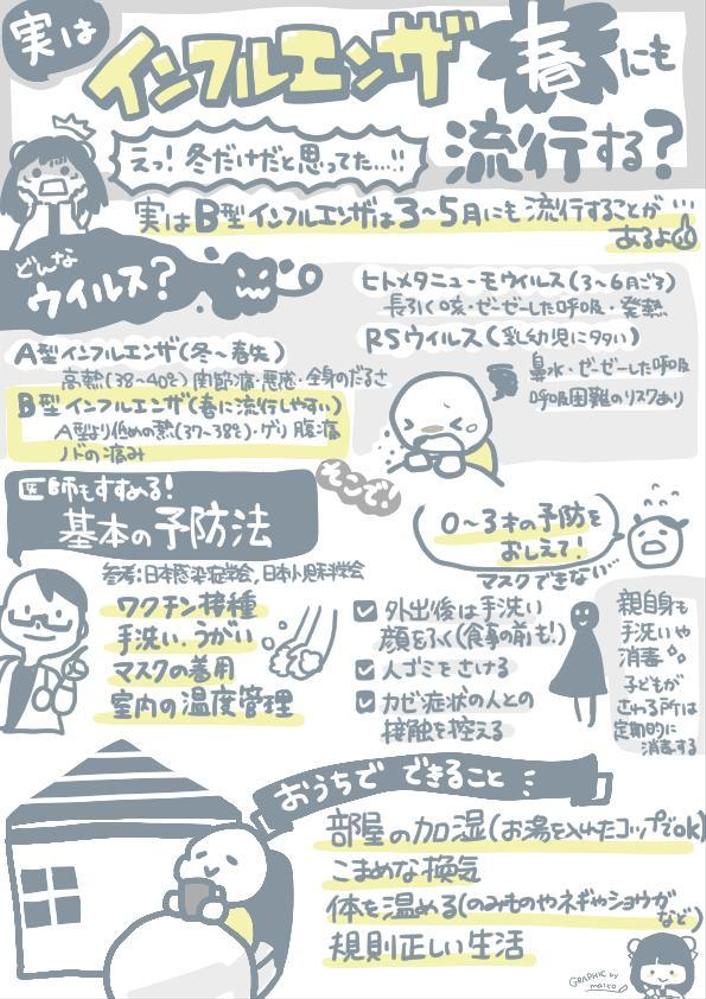 実は
インフルエンザ 春にも
流行する?
えっ!冬だけだと思ってた...!!
実はB型インフルエンザは3〜5月にも流行することが...
あるよ
どんな
ウイルス?
A型インフルエンザ(冬〜春先)
高熱(38〜40℃)関節痛・悪感・全身のだるさ
B型インフルエンザ(春に流行しやすい)
A型より低めの熱(37〜38℃)・ゲリ 腹痛
ノドの痛み
ヒトメタニューモウイルス(3〜6月ごろ)
長引く咳・ゼーゼーした呼吸・発熱
RSウイルス(乳幼児に多い)
鼻水・ゼーゼーした呼吸
呼吸困難のリスクあり
そこで!
医師もすすめる!
基本の予防法
参考:日本感染症学会,日本小児科学会
ワクチン接種
手洗い.うがい
マスクの着用
室内の温度管理
0〜3才の予防を
おしえて!
マスクできない...
外出後は手洗い
顔をふく(食事の前も!)
人ゴミをさける
カゼ症状の人との
接触を控える
親自身も
手洗いや
消毒
子どもが
さわる所は
定期的に
消毒する
おうちで できること...
部屋の加湿(お湯を入れたコップでOK)
こまめな換気
体を温める(のみものやネギやショウガ
など)
規則正しい生活
GRAPHIC by
maico